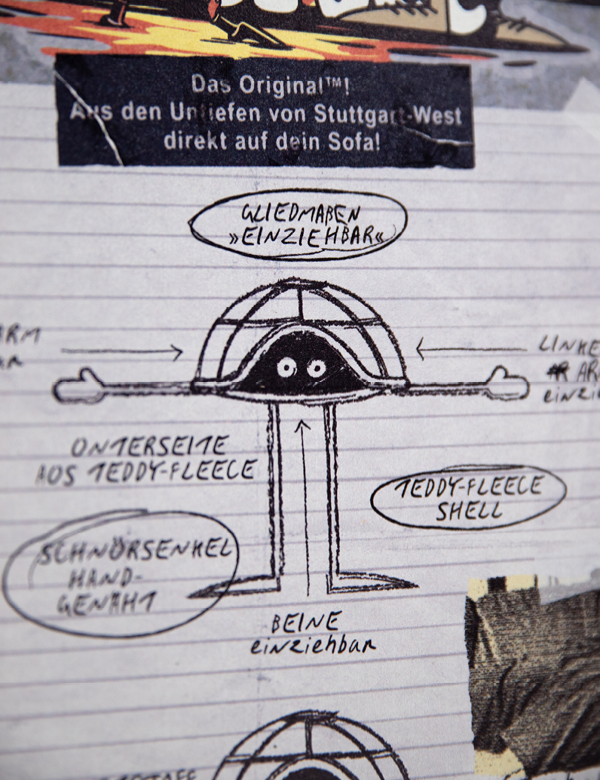 Das Original™!
Aus den Untiefen von Stuttgart-West
direkt auf dein Sofa!
GLIEDMAßEN
»EINZIEHBAR«
ARM
LINKE
AR
UNTERSEITE
AUS TEDDY-FLEECE
TEDDY-FLEECE
SHELL
SCHNÜRSENKEL
HAND-
GENÄHT
BEINE
einziehbar